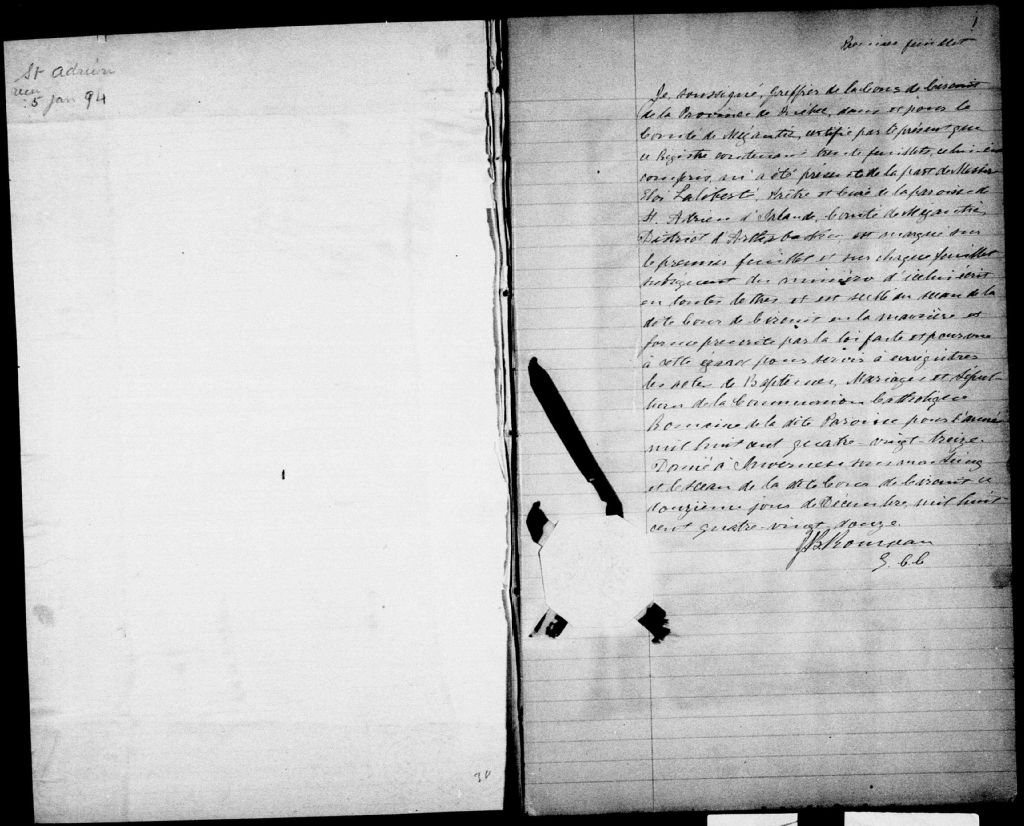 St Adrien
reçu
5 jan 94
30
1
Premier feuillet
Je, soussigné, Greffier de la Cour de Circuit
de la Province de Québec, dans et pour le
Comté de Mégantic, certifie par le présent que
ce Registre contenant trente feuillets, celui-ci
compris, m'a été présenté de la part de Messire
Eloi Laliberté, Prêtre et Curé de la paroisse de
St. Adrien d'Irlande, Comté de Mégantic,
District d'Arthabaska, est marqué sur
le premier feuillet et sur chaque feuillet
subséquent du numéro d'icelui écrit
en toutes lettres et est scellé du sceau de la
dite Cour de Circuit en la manière et
forme prescrite par la loi faite et pourvue
à cette égard pour servir à enregistrer
les actes de Baptêmes, Mariages et Sépul-
tures de la Communion Catholique
Romaine de la dite Paroisse pour l'année
mil huit cent quatre-vingt-treize.
Donné à Inverness sous mon Seing
et le sceau de la dite Cour de Circuit ce
jour de Décembre, mil huit
cent quatre-vingt-douze.
G. C. C